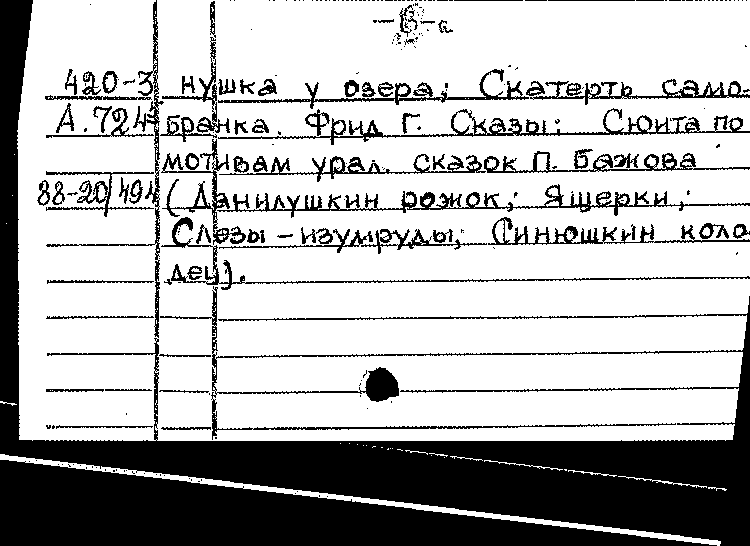 -6-а
420-3 нушка у озера; Скатерть само-
А.724 бранка. Фрид Г. Сказы: Сюита по
мотивам урал. сказок П. Бажова
88-20/494 (Данилушкин рожок; Ящерки;
Слезы-изумруды; Синюшкин коло
дец).